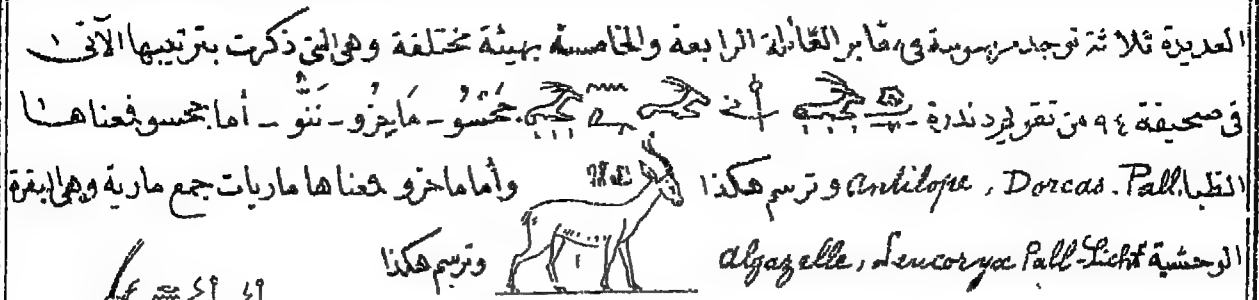 العديدة ثلاثة توجد مرسومة فى مقابر العائلة الرابعة والخامسة بهيئة مختلفة وهى التى ذكرت بترتيبها الآتى
فى صحيفة ٩٤ من تقويم دندرة جَحَسُو ـ مَايِزُو ـ نَنُّو ـ أما جحسو فمعناها
الظباء Antilope, Dorcas. Pall. وترسم هكذا وأما ماخزو فمعناها ماريات جمع مارية وهى البقرة
الوحشية algazelle, Leucoryx Pall-Licht وترسم هكذا